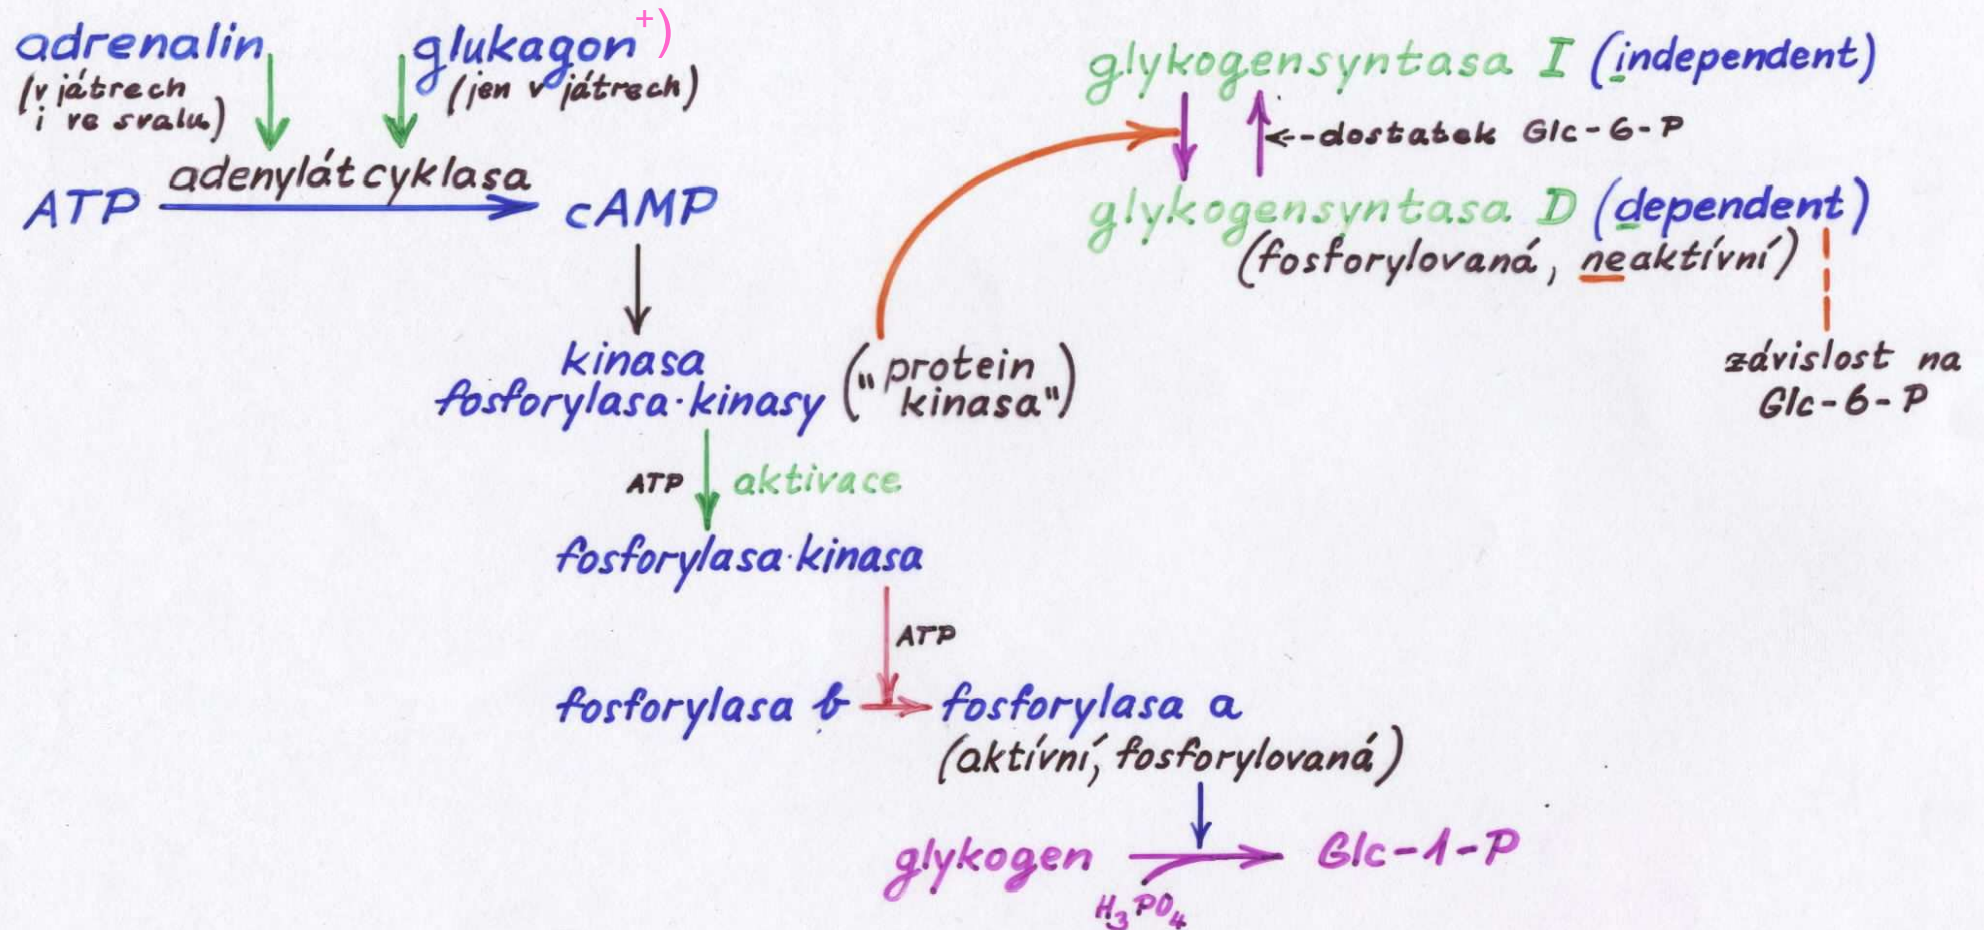 adrenalin
(v játrech
i ve svalu)
glukagon +)
(jen v játrech)
adenylátcyklasa
ATP
cAMP
kinasa
fosforylasa·kinasy
("protein
kinasa")
ATP
aktivace
fosforylasa·kinasa
ATP
fosforylasa b
fosforylasa a
(aktívní, fosforylovaná)
glykogen
Glc-1-P
H3PO4
glykogensyntasa I (independent)
<--dostatek Glc-6-P
glykogensyntasa D (dependent)
(fosforylovaná, neaktívní)
závislost na
Glc-6-P